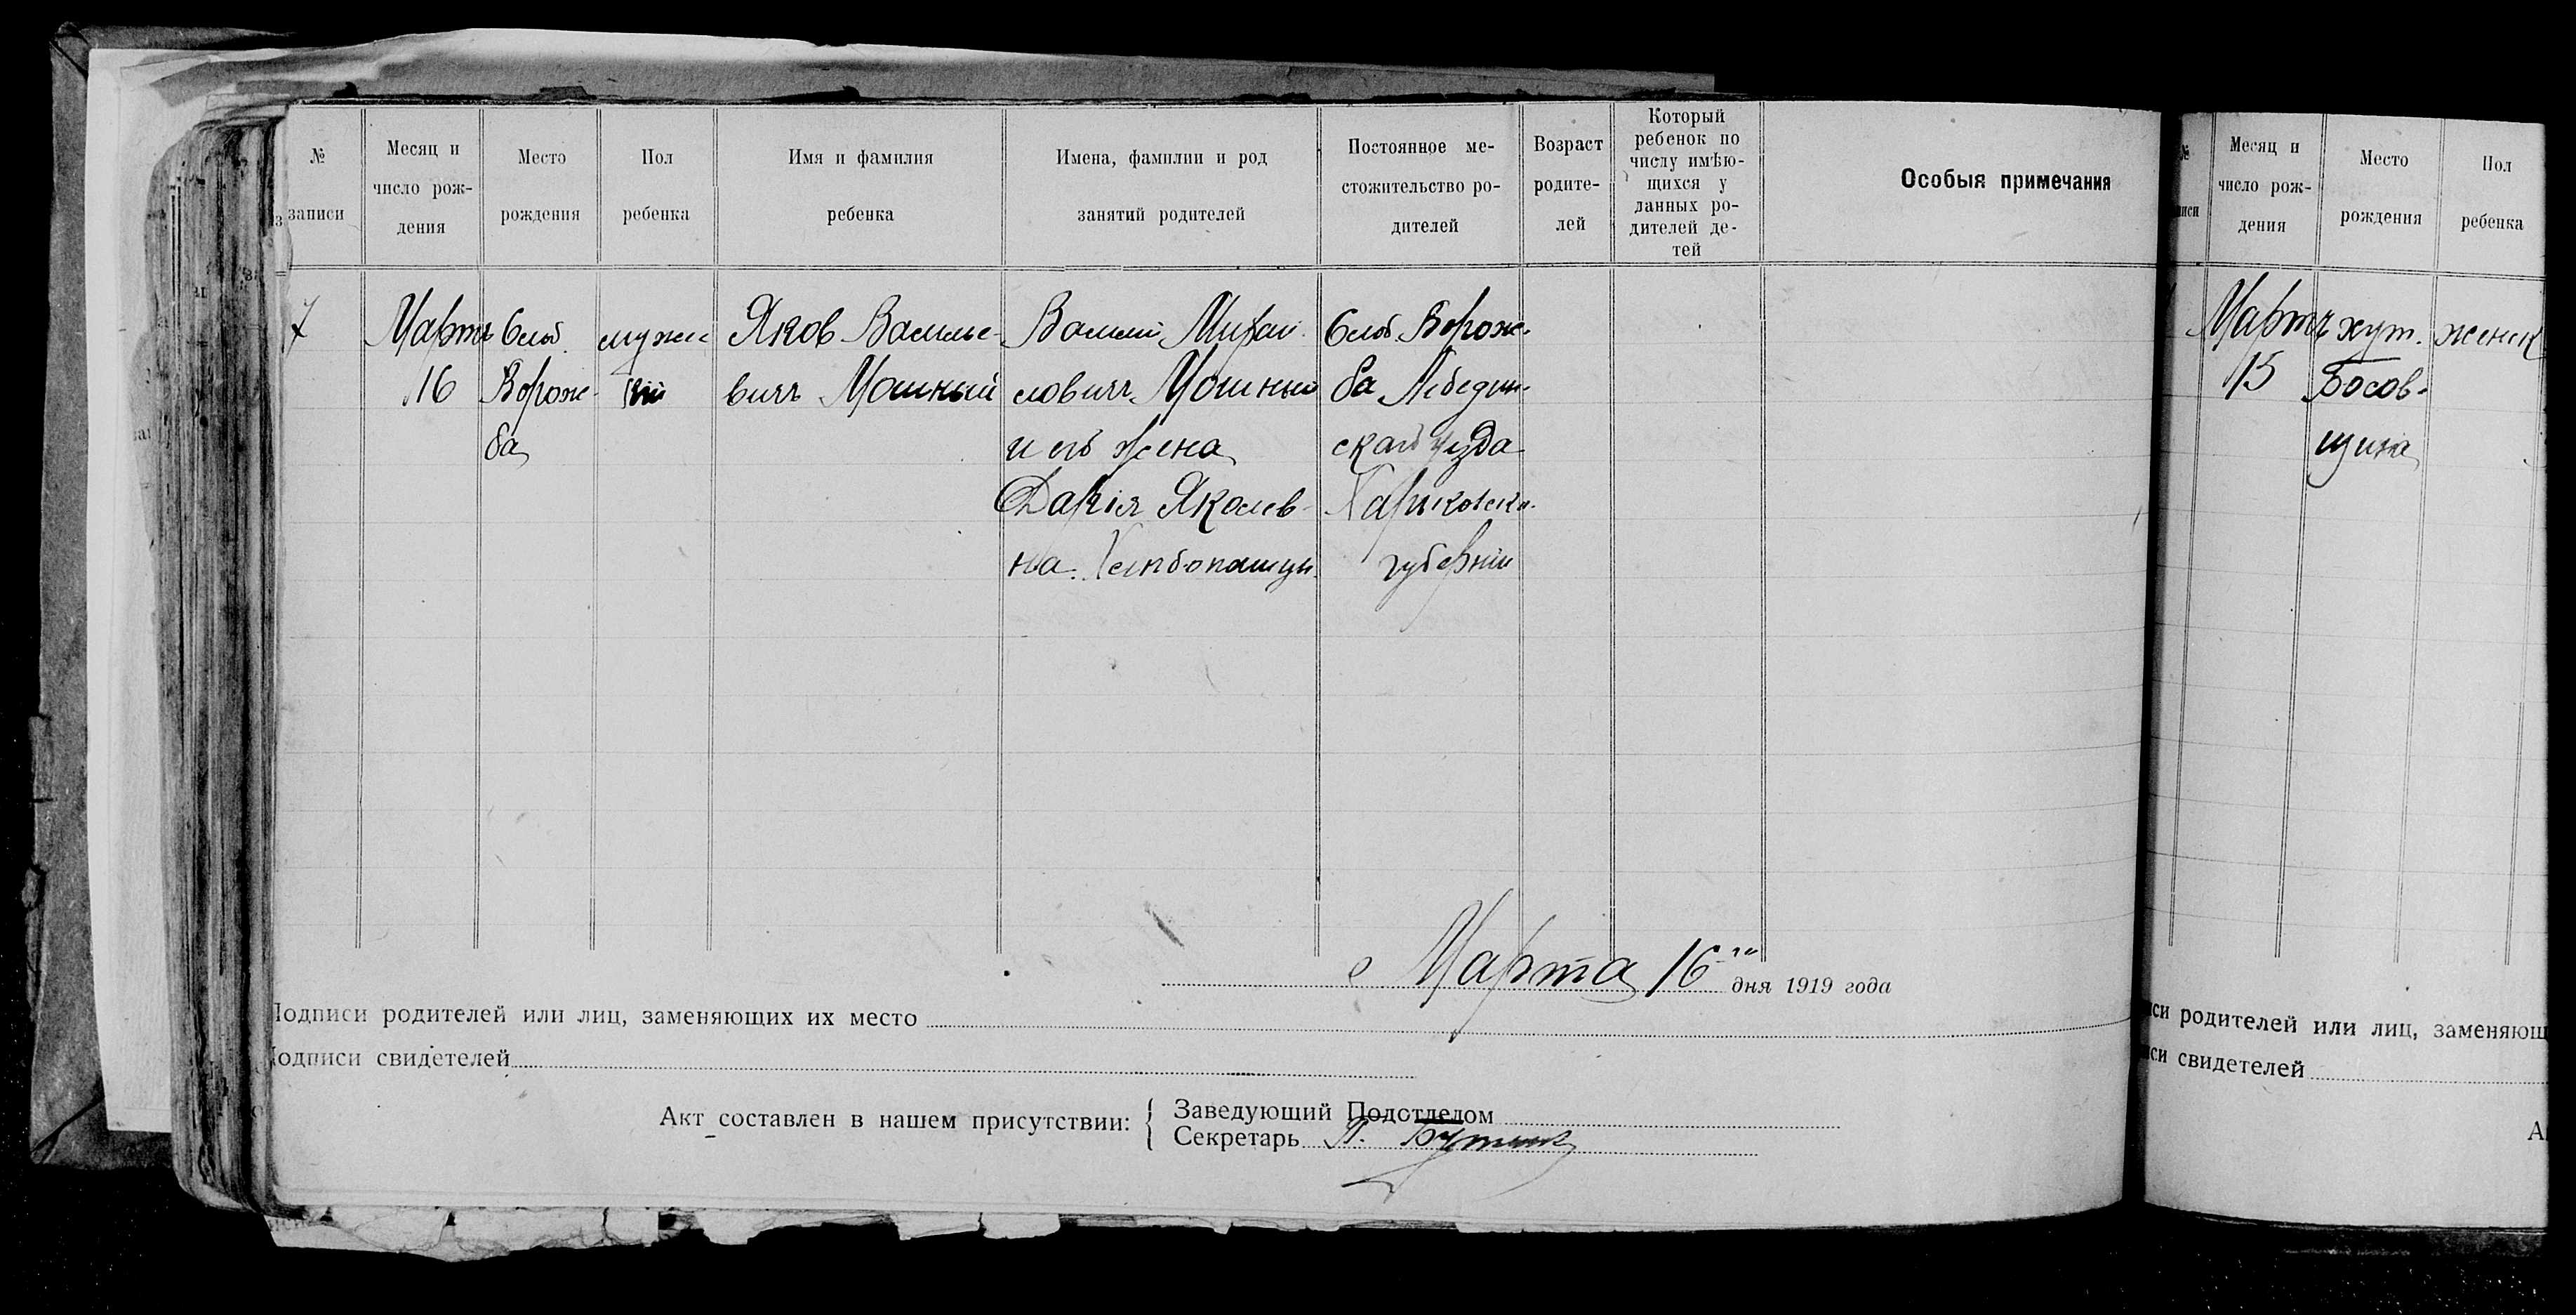 №
записи
Месяц и
число рож-
дения
Место
рождения
Пол
ребенка
Имя и фамилия
ребенка
Имена, фамилии и род
занятий родителей
Постоянное ме-
стожительство ро-
дителей
Возраст
родите-
лей
Который
ребенок по
числу имѣю-
щихся у
данных ро-
дителей де-
тей
Особыя примечания
7
Мартъ
16
Слоб.
Ворож-
ба
мужс-
кій
Яков Василье-
вичъ Мошный
Василий Михай-
ловичъ Мошный
и его жена
Дарія Яковлев-
на. Хлебопашцы.
Слоб. Ворож-
ба Лебедин-
скаго уезда
Харьковской
губернии
Марта 16-го дня 1919 года
Подписи родителей или лиц, заменяющих их место
Подписи свидетелей
Акт составлен в нашем присутствии:
Заведующий Подотделом
Секретарь П.
№
писи
Месяц и
число рож-
дения
Место
рождения
Пол
ребенка
Мартъ
15
хут.
Босов-
щина
женск
иси родителей или лиц, заменяющ
иси свидетелей
А